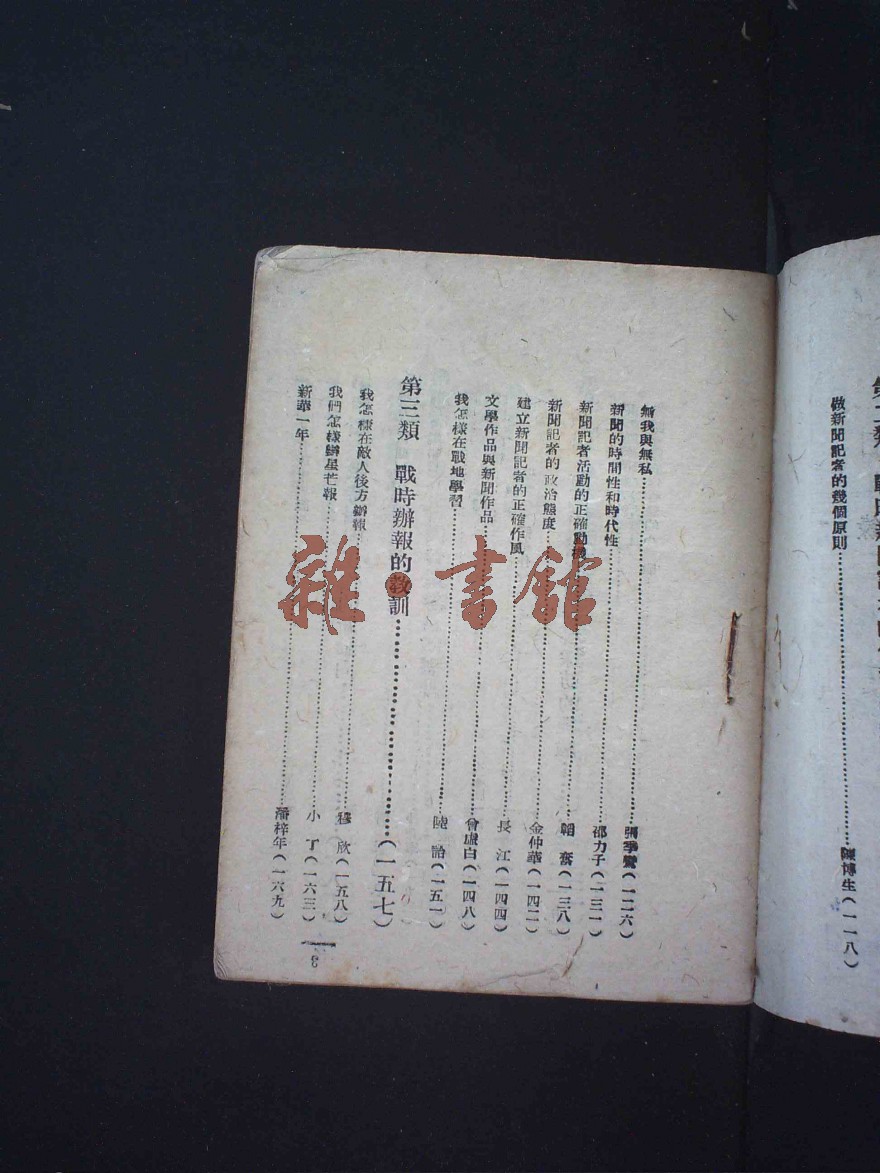 做新聞記者的幾個原則……陳博生(一一八)
無我與無私……張季鸞(一二六)
新聞的時間性和時代性……邵力子(一三一)
新聞記者活動的正確動機……韜奮(一三八)
新聞記者的政治態度……金仲華(一四二)
建立新聞記者的正確作風……長江(一四四)
文學作品與新聞作品……曾虛白(一四八)
我怎樣在戰地學習……陸詒(一五一)
第三類 戰時辦報的教訓……(一五七)
我怎樣在敵人後方辦報……穆欣(一五八)
我們怎樣辦星芒報……小丁(一六三)
新華一年……潘梓年(一六九)
3
雜·書館